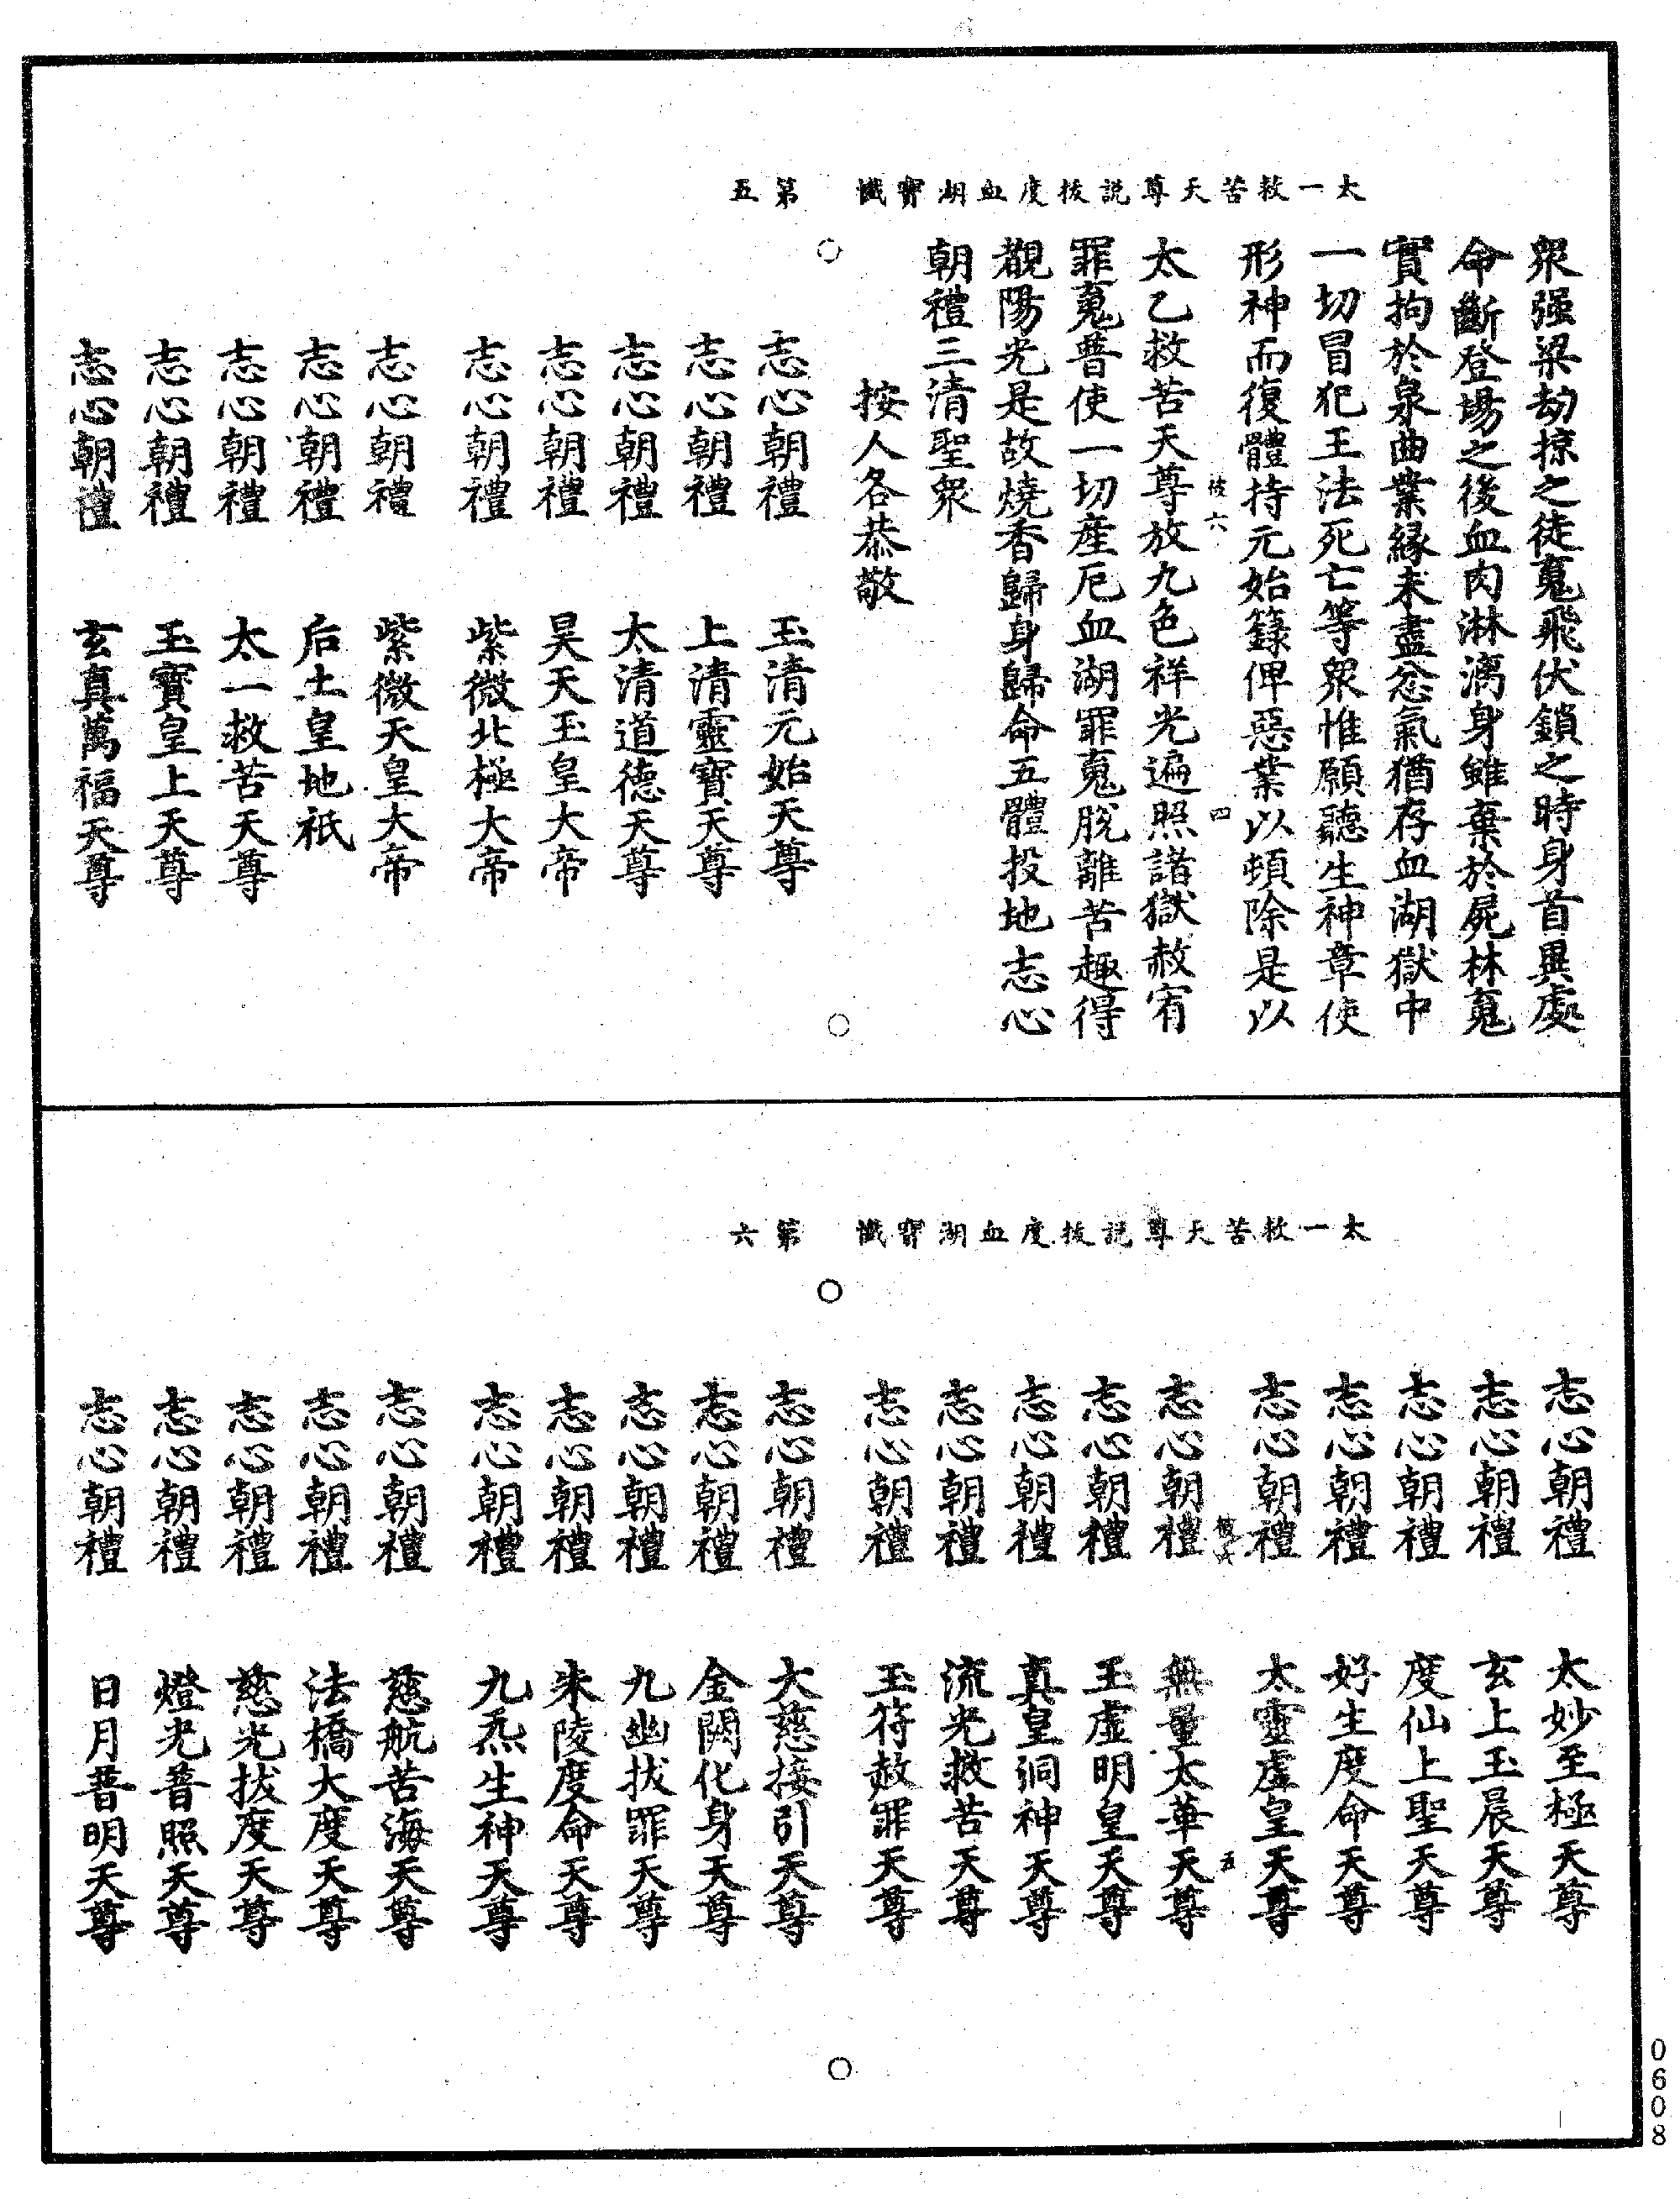 太一救苦天尊說拔度血湖寶懺　第五
眾强梁劫掠之徒䰟飛伏鎖之時身首異處
命斷登場之後血肉淋漓身雖棄於屍林䰟
實拘於泉曲業緣未盡忿氣猶存血湖獄中
一切冒犯王法死亡等眾惟願聽生神章使
形神而復體持元始籙俾惡業以頓除是以
彼六　四
太乙救苦天尊放九色祥光遍照諸獄赦宥
罪䰟普使一切產厄血湖罪䰟脫離苦趣得
覩陽光是故燒香歸身歸命五體投地志心
朝禮三清聖眾
按人各恭敬
志心朝禮　玉清元始天尊
志心朝禮　上清靈寶天尊
志心朝禮　太清道德天尊
志心朝禮　昊天玉皇大帝
志心朝禮　紫微北極大帝
志心朝禮　紫微天皇大帝
志心朝禮　后土皇地祇
志心朝禮　太一救苦天尊
志心朝禮　玉寶皇上天尊
志心朝禮　玄真萬福天尊
太一救苦天尊說拔度血湖寶懺　第六
志心朝禮　太妙至極天尊
志心朝禮　玄上玉晨天尊
志心朝禮　度仙上聖天尊
志心朝禮　好生度命天尊
志心朝禮　太靈虛皇天尊
五
志心朝禮　無量太華天尊
志心朝禮　玉虛明皇天尊
志心朝禮　真皇洞神天尊
志心朝禮　流光救苦天尊
志心朝禮　玉符赦罪天尊
志心朝禮　大慈接引天尊
志心朝禮　金闕化身天尊
志心朝禮　九幽拔罪天尊
志心朝禮　朱陵度命天尊
志心朝禮　九炁生神天尊
志心朝禮　慈航苦海天尊
志心朝禮　法橋大度天尊
志心朝禮　慈光拔度天尊
志心朝禮　燈光普照天尊
志心朝禮　日月普明天尊
0608